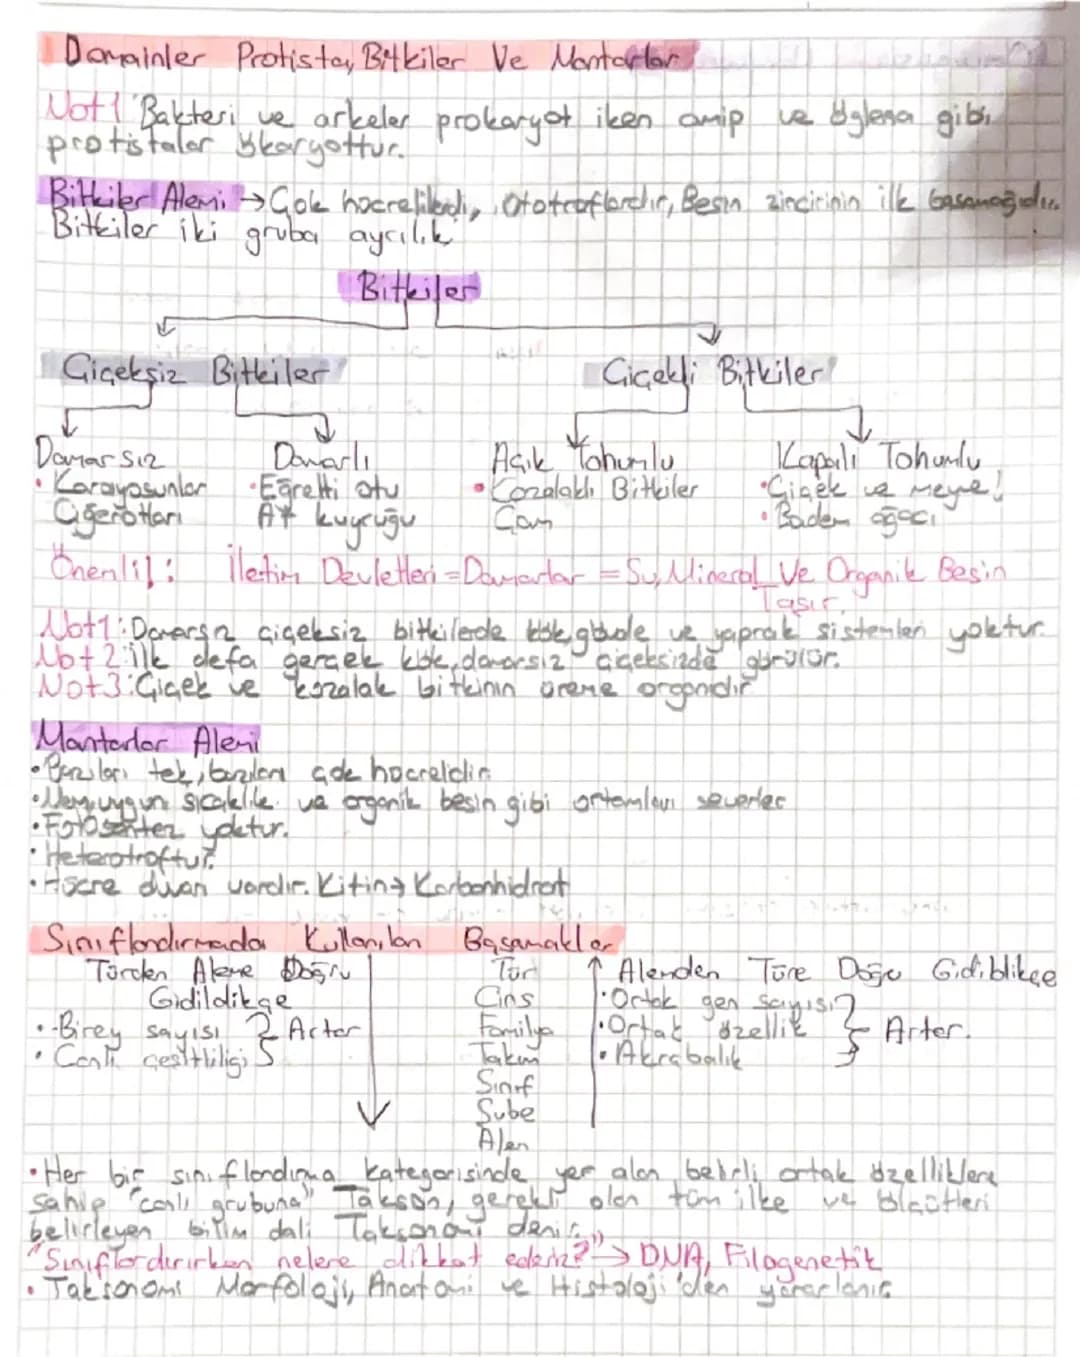 Domainler Protista, Bitkiler Ve Mantarlar
Not1 Bakteri ve arkeler prokaryot iken amip ve öglena gibi
protistalar ökaryottur.
Bitkiler Alemi → Çok hücrelilerdi, Ototroflardır, Besin zincirinin ilk basamağıdır.
Bitkiler iki gruba ayrılık
Bitkiler
Çiçeksiz Bitkiler Çiçekli Bitkiler
Damarsız Damarlı Açık Tohumlu Kapalı Tohumlu
• Karayosunlar • Eğrelti otu • Cozalaklı Bitkiler • Çiçek ve meyve!
Ciğerotları At kuyruğu Çam • Badem ağacı
Önemli!: İletim Devletleri = Damarlar = Su, Mineral Ve Organik Besin
Taşır.
Not1: Damarsız çiçeksiz bitkilerde kök, gövde ve yaprak sistemleri yoktur.
Not 2: İlk defa gerçek kök, damarsız çiçeksizde görülür.
Not3: Çiçek ve kozalak bitkinin üreme organıdır
Mantarlar Alemi
• Bazıları tek, bazıları çok hücrelidir.
• Nem, uygun sıcaklık ve organik besin gibi ortamları severler
• Fotosentez yoktur.
• Heterotroftur.
• Hücre duvarı vardır. Kitin → Karbonhidrat
Sınıflandırmada Kullanılan Basamaklar
Türden Aleme Doğru Tür ↑ Alemden Türe Doğru Gidiblikçe
Gidildikçe Cins • Ortak gen sayısı
• Birey sayısı } Artar Familya • Ortak özellik } Artar.
• Canlı çeşitliliği Takım • Akrabalık
Sınıf
Şube
Alem
• Her bir sınıflandırma kategorisinde yer alan belirli ortak özelliklere
sahip "canlı grubuna" Takson, gerekli olan tüm ilke ve ölçütleri
belirleyen bilim dali Taksonomi denir.
"Sınıflardırırken nelere dikkat ederiz?" → DNA, Filogenetik
• Taksonomi Morfoloji, Anatomi ve Histoloji'den yararlanır